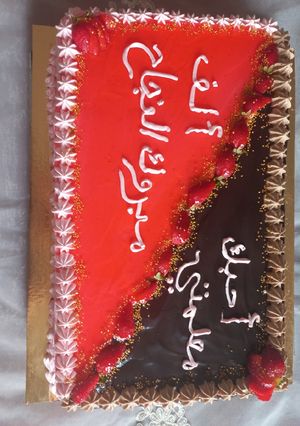 ألف
مبروك النجاح
أحبك
معلمتي